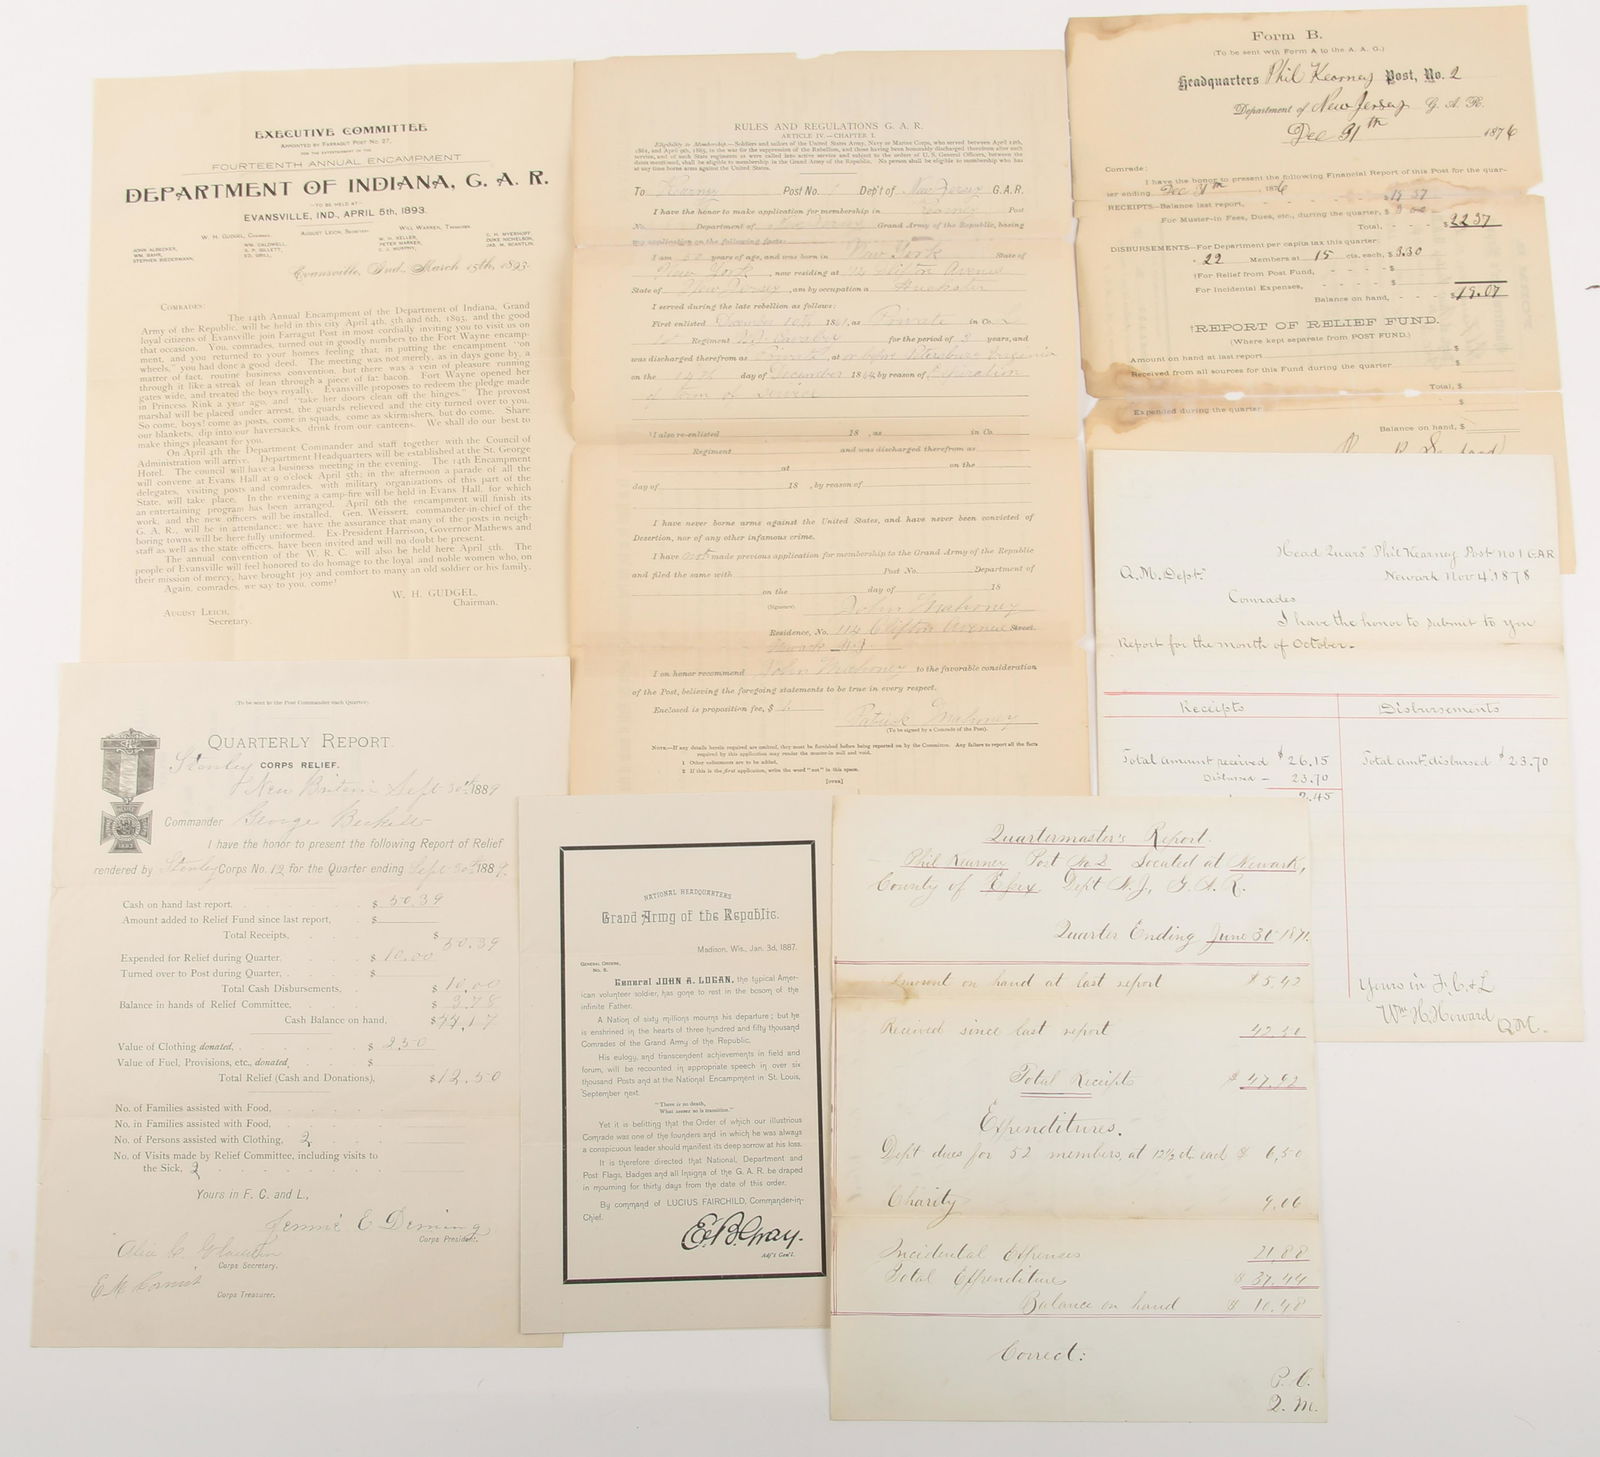 EXECUTIVE COMMITTEE
APPOINTED BY FARRAGUT POST NO. 27,
FOR THE ENTERTAINMENT OF THE
FOURTEENTH ANNUAL ENCAMPMENT
DEPARTMENT OF INDIANA, G. A. R.
-TO BE HELD AT-
EVANSVILLE, IND., APRIL 5th, 1893.
W. H. GUDGEL, Chairman. AUGUST LEICH, Secretary. WILL WARREN, Treasurer.
JOHN ALBECKER, WM. CALDWELL, W. H. KELLER, C. H. MYERHOFF,
WM. BAHR, S. P. GILLETT, PETER MARKER, DUKE NICHELSON,
STEPHEN BIEDERMANN, ED. GRILL, C. J. MURPHY, JAS. M. SCANTLIN.
Evansville, Ind., March 15th, 1893.
COMRADES:
The 14th Annual Encampment of the Department of Indiana, Grand
Army of the Republic, will be held in this city April 4th, 5th and 6th, 1893, and the good
loyal citizens of Evansville join Farragut Post in most cordially inviting you to visit us on
that occasion. You, comrades, turned out in goodly numbers to the Fort Wayne encamp-
ment, and you returned to your homes feeling that, in putting the encampment "on
wheels," you had done a good deed. The meeting was not merely, as in days gone by, a
matter of fact, routine business convention, but there was a vein of pleasure running
through it like a streak of lean through a piece of fat bacon. Fort Wayne opened her
gates wide, and treated the boys royally. Evansville proposes to redeem the pledge made
in Princess Rink a year ago, and "take her doors clean off the hinges." The provost
marshal will be placed under arrest, the guards relieved and the city turned over to you.
So come, boys! come as posts, come in squads, come as skirmishers, but do come. Share
our blankets, dip into our haversacks, drink from our canteens. We shall do our best to
make things pleasant for you.
On April 4th the Department Commander and staff together with the Council of
Administration will arrive. Department Headquarters will be established at the St. George
Hotel. The council will have a business meeting in the evening. The 14th Encampment
will convene at Evans Hall at 9 o'clock April 5th; in the afternoon a parade of all the
delegates, visiting posts and comrades, with military organizations of this part of the
State, will take place. In the evening a camp-fire will be held in Evans Hall, for which
an entertaining program has been arranged. April 6th the encampment will finish its
work, and the new officers will be installed. Gen. Weissert, commander-in-chief of the
G. A. R., will be in attendance; we have the assurance that many of the posts in neigh-
boring towns will be here fully uniformed. Ex-President Harrison, Governor Mathews and
staff as well as the state officers, have been invited and will no doubt be present.
The annual convention of the W. R. C. will also be held here April 5th. The
people of Evansville will feel honored to do homage to the loyal and noble women who, on
their mission of mercy, have brought joy and comfort to many an old soldier or his family.
Again, comrades, we say to you, come!
W. H. GUDGEL,
Chairman.
AUGUST LEICH,
Secretary.
RULES AND REGULATIONS G. A. R.
ARTICLE IV.—CHAPTER I.
Eligibility to Membership—Soldiers and sailors of the United States Army, Navy or Marine Corps, who served between April 12th,
1861, and April 9th, 1865, in the war for the suppression of the Rebellion, and those having been honorably discharged therefrom after such
service, and of such State regiments as were called into active service and subject to the orders of U. S. General Officers, between the
dates mentioned, shall be eligible to membership in the Grand Army of the Republic. No person shall be eligible to membership who has
at any time borne arms against the United States.
To Kearney Post No. 1 Dep't of New Jersey G. A. R.
I have the honor to make application for membership in Kearney Post
No. Department of New Jersey Grand Army of the Republic, basing
my application on the following facts:
I am 50 years of age, and was born in New York State of
New York, now residing at 114 Clifton Avenue
State of New Jersey, am by occupation a Huckster
I served during the late rebellion as follows:
First enlisted December 10th 1861, as Private in Co. L
1st Regiment N.J. Cavalry for the period of 3 years, and
was discharged therefrom as Private, at Petersburg Virginia
on the 14th day of December 1864, by reason of Expiration
of Term of Service
I also re-enlisted 18 , as in Co.
Regiment and was discharged therefrom as
at on the
day of 18 , by reason of
I have never borne arms against the United States, and have never been convicted of
Desertion, nor of any other infamous crime.
I have not made previous application for membership to the Grand Army of the Republic
and filed the same with Post No. Department of
on the day of 18
(Signature) John Mahoney
Residence, No. 114 Clifton Avenue Street.
Newark N.J
I on honor recommend John Mahoney to the favorable consideration
of the Post, believing the foregoing statements to be true in every respect.
Enclosed is proposition fee, $ 1
Patrick Mahoney
(To be signed by a Comrade of the Post).
NOTE.—If any details herein required are omitted, they must be furnished before being reported on by the Committee. Any failure to report all the facts
required by this application may render the muster-in null and void.
1 Other enlistments are to be added,
2 If this is the first application, write the word "not" in this space.
[OVER]
Form B.
(To be sent with Form A to the A. A. G.)
Headquarters Phil Kearney Post, No. 2
Department of New Jersey G. A. R.
Dec 31th 1876
Comrade:
I have the honor to present the following Financial Report of this Post for the quar-
ter ending Dec 31th 1876
RECEIPTS—Balance last report, $ 19 37
For Muster-in Fees, Dues, etc., during the quarter, $ 3 00
Total, $ 22 37
DISBURSEMENTS—For Department per capita tax this quarter:
22 Members at 15 cts. each, $ 3.30
†For Relief from Post Fund, $
For Incidental Expenses, $
Balance on hand, $ 19.07
†REPORT OF RELIEF FUND.
(Where kept separate from POST FUND.)
Amount on hand at last report $
Received from all sources for this Fund during the quarter $
Total, $
Expended during the quarter $
Balance on hand, $
Head Quars Phil Kearney Post no 1 GAR
Q.M. Dept. Newark Nov 4. 1878
Comrades
I have the honor to submit to you
Report for the month of October.
Receipts Disbursements
Total amount received $ 26.15 Total amt. disbursed $ 23.70
Disbursed - 23.70
2.45
Yours in F. C & L
Wm H. Howard
Q.M.
(To be sent to the Post Commander each Quarter).
QUARTERLY REPORT.
Stanley CORPS RELIEF.
New Britain Sept 30th 1889
Commander George Beckley
I have the honor to present the following Report of Relief
rendered by Stanley Corps No. 12, for the Quarter ending Sept 30th 1889.
Cash on hand last report, $ 50.39
Amount added to Relief Fund since last report, $
Total Receipts, $ 50.39
Expended for Relief during Quarter, $ 10.00
Turned over to Post during Quarter, $
Total Cash Disbursements, $ 10.00
Balance in hands of Relief Committee, $ 3.78
Cash Balance on hand, $ 44.17
Value of Clothing donated, $ 2.50
Value of Fuel, Provisions, etc., donated, $
Total Relief (Cash and Donations), $ 12.50
No. of Families assisted with Food,
No. in Families assisted with Food,
No. of Persons assisted with Clothing, 2
No. of Visits made by Relief Committee, including visits to
the Sick, 2
Yours in F. C. and L.,
Jennie E Deming
Corps President.
Alice C.
Corps Secretary.
E M
Corps Treasurer.
NATIONAL HEADQUARTERS
Grand Army of the Republic.
Madison, Wis., Jan. 3d, 1887.
GENERAL ORDERS,
No. 8.
General JOHN A. LOGAN, the typical Amer-
ican volunteer soldier, has gone to rest in the bosom of the
infinite Father.
A Nation of sixty millions mourns his departure; but he
is enshrined in the hearts of three hundred and fifty thousand
Comrades of the Grand Army of the Republic.
His eulogy, and transcendent achievements in field and
forum, will be recounted in appropriate speech in over six
thousand Posts and at the National Encampment in St. Louis,
September next.
"There is no death,
What seems so is transition."
Yet it is befitting that the Order of which our illustrious
Comrade was one of the founders and in which he was always
a conspicuous leader should manifest its deep sorrow at his loss.
It is therefore directed that National, Department and
Post Flags, Badges and all Insignia of the G. A. R. be draped
in mourning for thirty days from the date of this order.
By command of LUCIUS FAIRCHILD, Commander-in-
Chief.
E.B. Gray.
Adj't Gen'l.
Quartermaster's Report.
Phil Kearney Post No. 2 Located at Newark,
County of Essex Dept N. J., G. A. R.
Quarter Ending June 30 1871.
Amount on hand at last report $ 5,42
Received since last report 42.50
Total Receipts $ 47.92
Expenditures.
Dept dues for 52 members, at 12½ ct. each $ 6,50
Charity 9.06
Incidental Expenses 21,88
Total Expenditure $ 37.44
Balance on hand $ 10.48
Correct:
P. C.
Q. M.